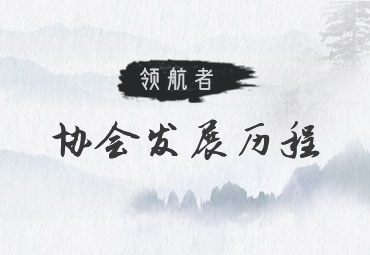 领航者
协会发展历程